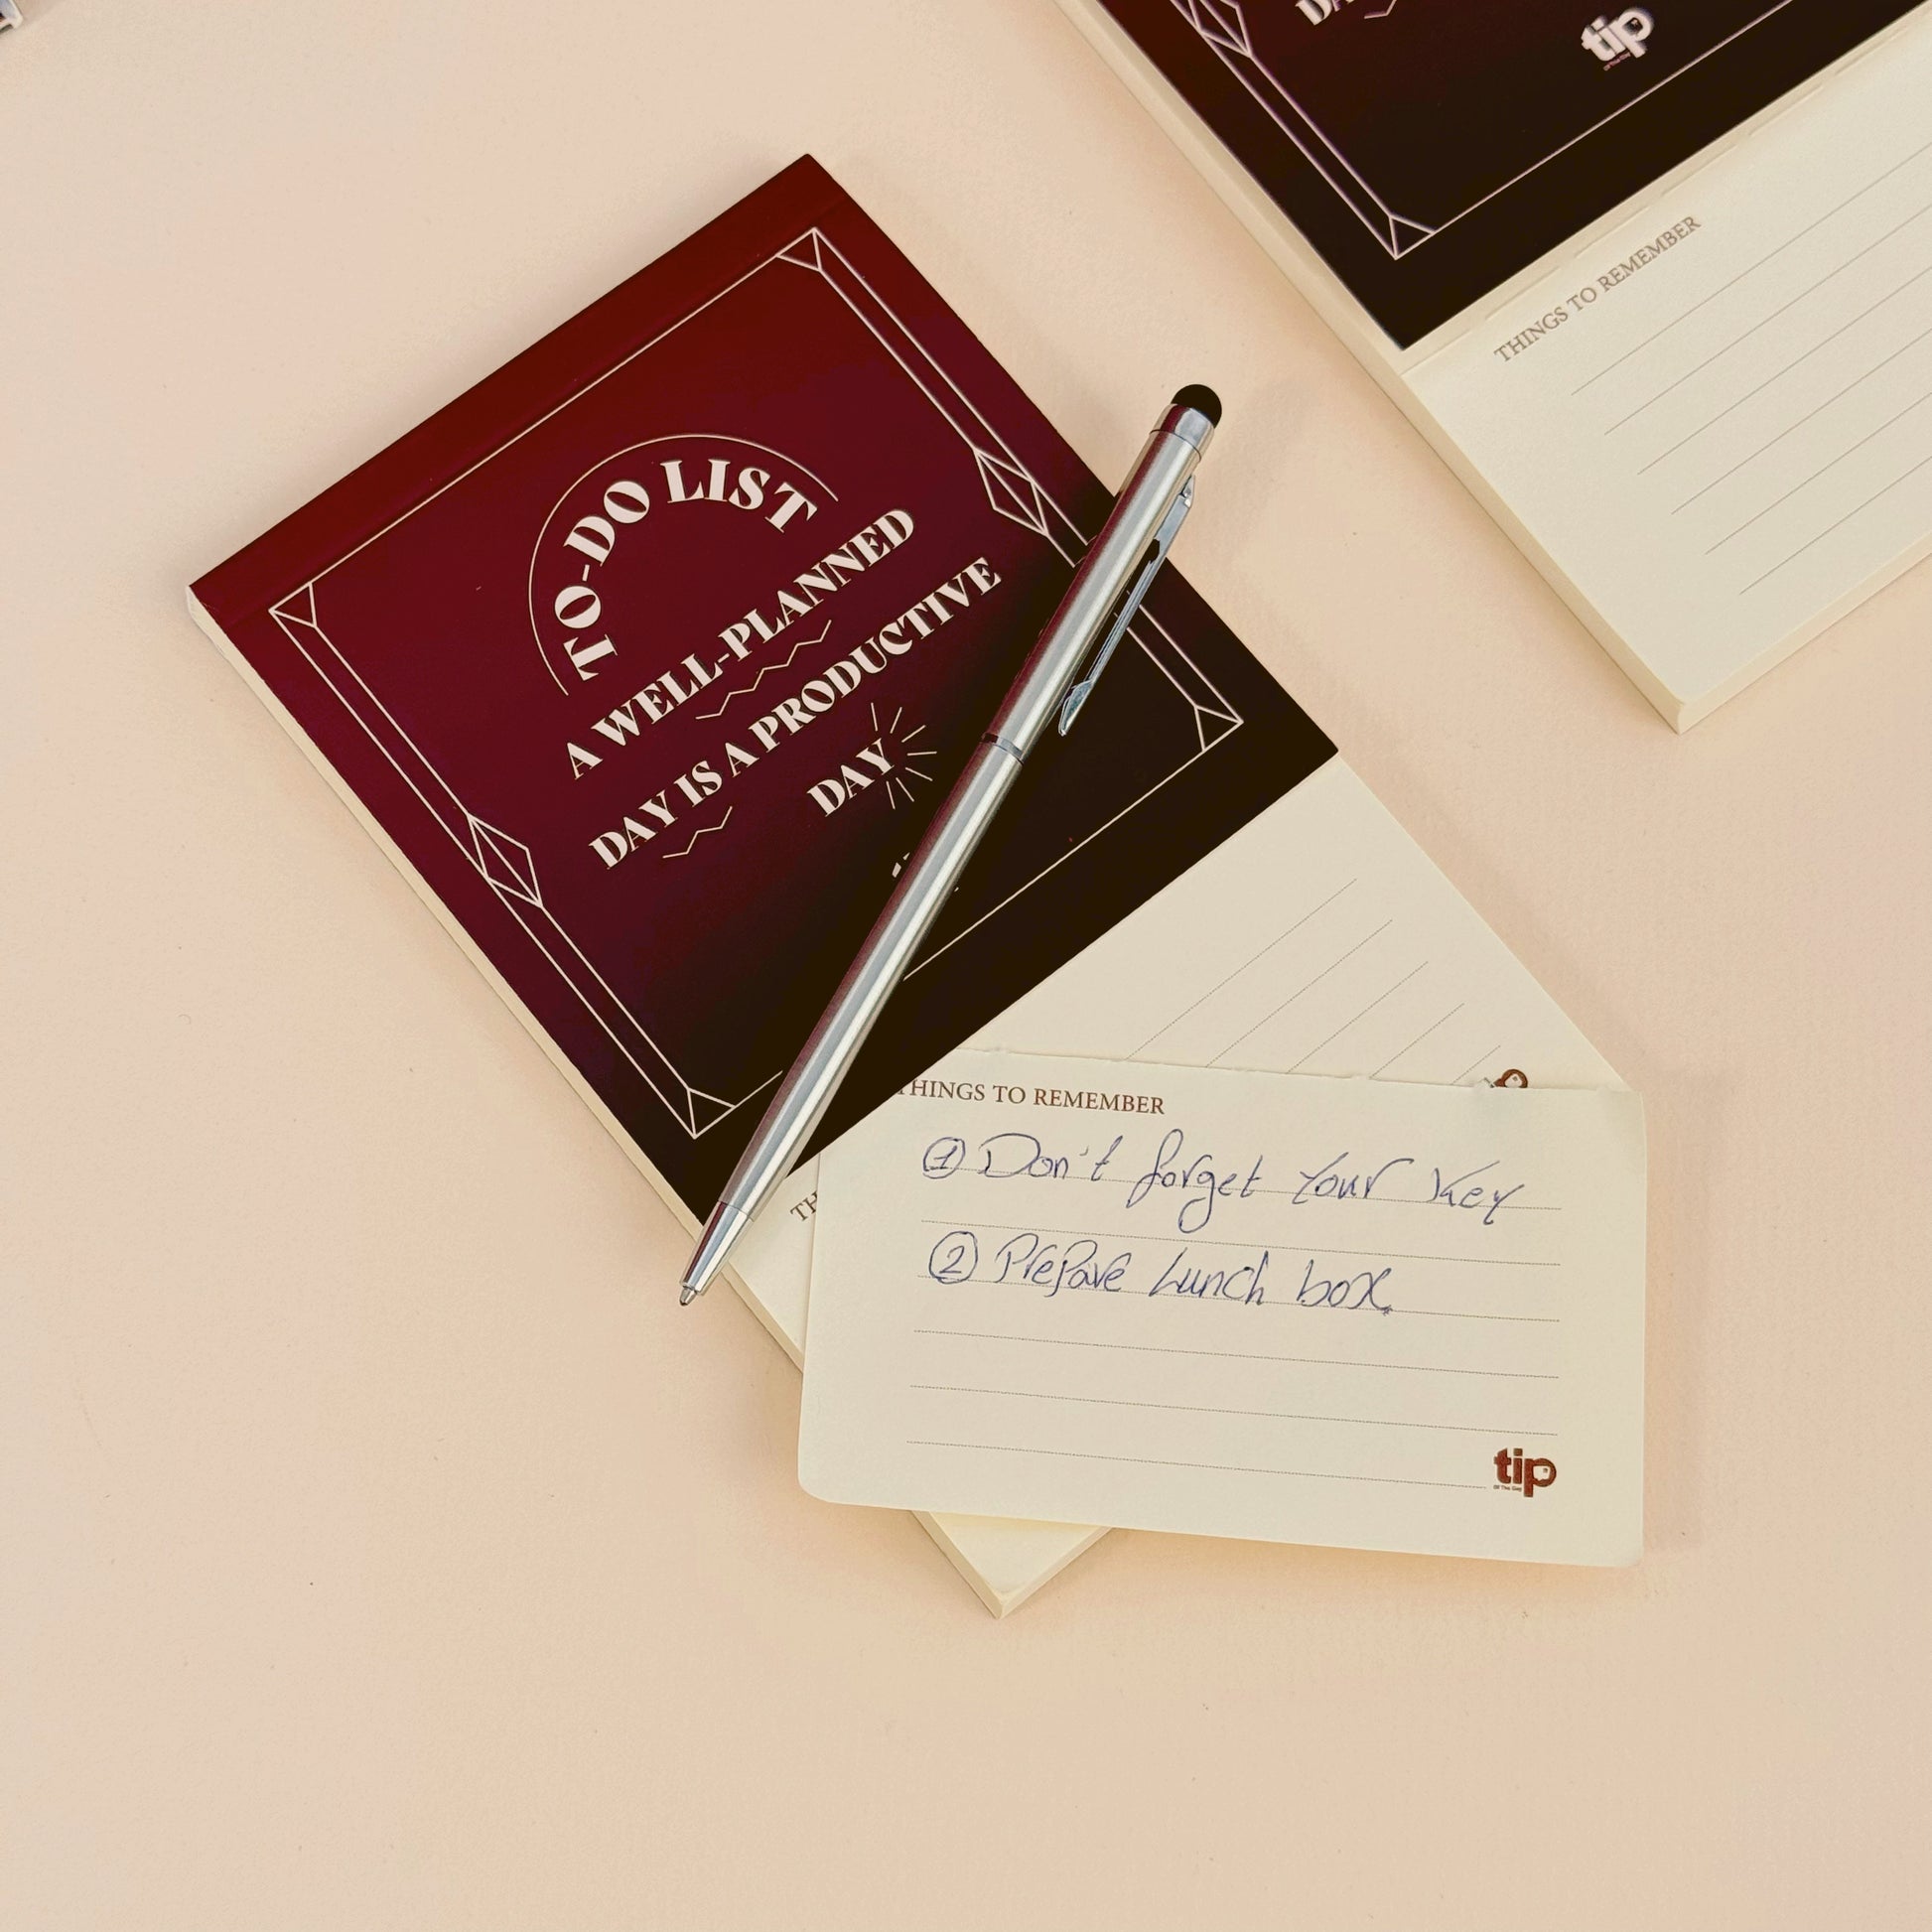 TO-DO LIST
A WELL-PLANNED
DAY IS A PRODUCTIVE
DAY
tip
THINGS TO REMEMBER
THINGS TO REMEMBER
① Don't forget Your Key
② Prepare Lunch box.
tip
Of The Day